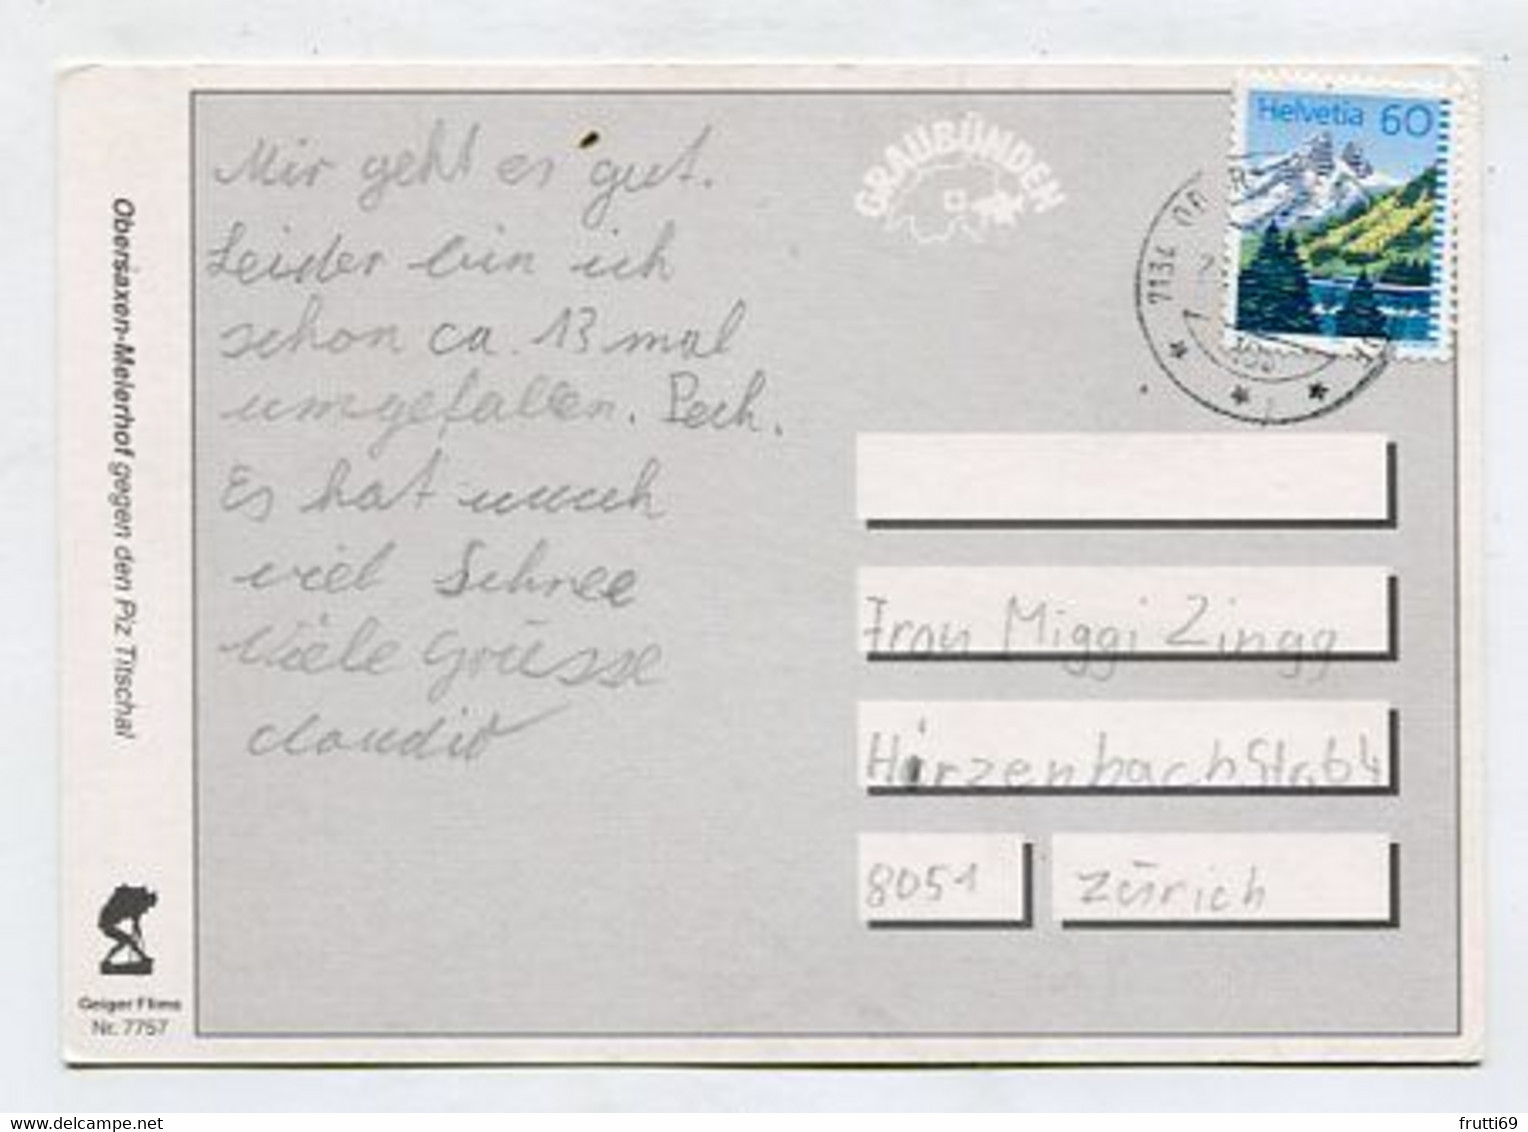 Helvetia 60
GRAUBÜNDEN
7134
Mir geht es gut.
Leider bin ich
schon ca. 13 mal
umgefallen. Pech.
Es hat
viel Schnee
Viele Grüsse
Claudio
Frau Miggi Zingg
Hirzenbachstr. 64
8051 Zürich
Obersaxen-Meierhof gegen den Piz Titschal
Geiger Flims
Nr. 7757
frutti69